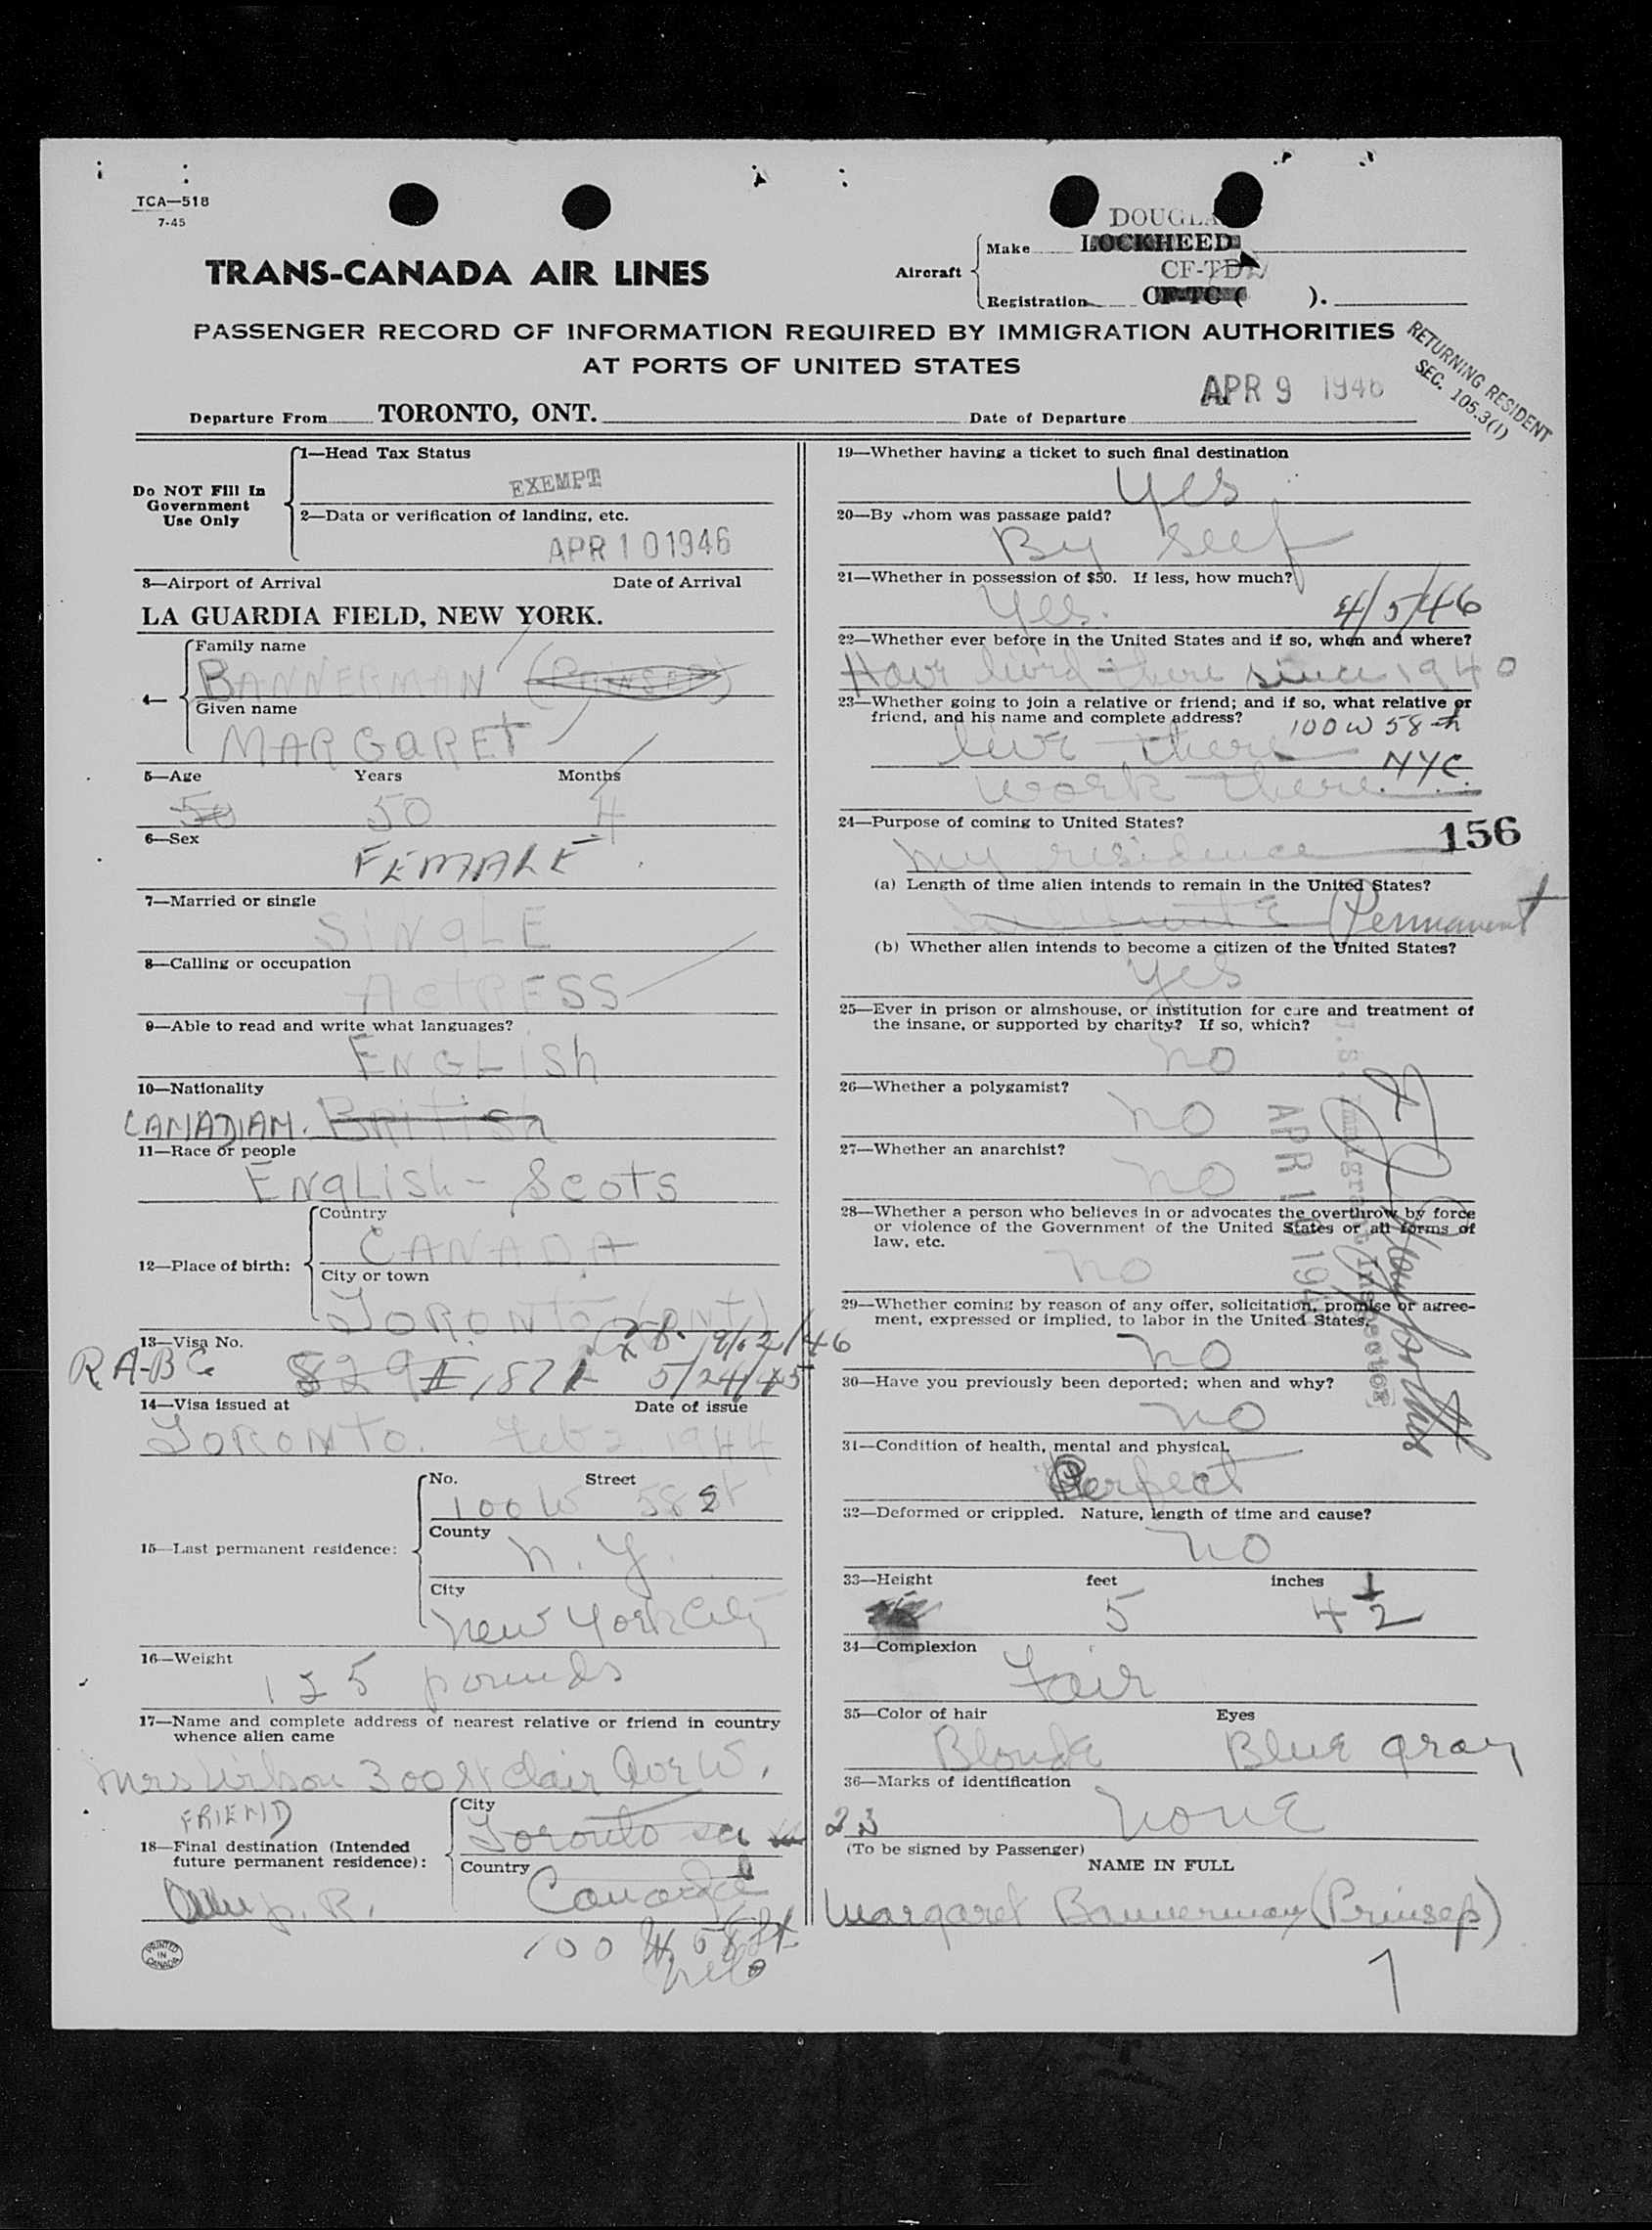 TCA—518
7-45
DOUGLA
Make LOCKHEED
TRANS-CANADA AIR LINES
Aircraft
CF-TD
Registration CF-TC ( ).
PASSENGER RECORD OF INFORMATION REQUIRED BY IMMIGRATION AUTHORITIES
AT PORTS OF UNITED STATES
RETURNING RESIDENT
SEC. 105.3(1)
APR 9 1946
Departure From TORONTO, ONT. Date of Departure
Do NOT Fill In
Government
Use Only
1—Head Tax Status
EXEMPT
2—Data or verification of landing, etc.
APR 10 1946
3—Airport of Arrival Date of Arrival
LA GUARDIA FIELD, NEW YORK.
4—
Family name
BANNERMAN (PRINSEP)
Given name
MARGARET
5—Age Years Months
50 50 4
6—Sex
FEMALE
7—Married or single
SINGLE
8—Calling or occupation
ACTRESS
9—Able to read and write what languages?
ENGLISH
10—Nationality
CANADIAN. British
11—Race or people
ENGLISH - Scots
12—Place of birth:
Country
CANADA
City or town
TORONTO (ONT)
13—Visa No.
5/24/45
14—Visa issued at Date of issue
TORONTO. Feb 2 1944
15—Last permanent residence:
No. Street
100 W 58 St
County
N. Y.
City
New York City
16—Weight
125 pounds
17—Name and complete address of nearest relative or friend in country
whence alien came
Mrs Wilson 300 St Clair Ave W.
FRIEND
18—Final destination (Intended
future permanent residence):
City
Toronto
Country
Canada
P. R.
100 W 58 St
PRINTED
IN
CANADA
19—Whether having a ticket to such final destination
Yes
20—By whom was passage paid?
By self
21—Whether in possession of $50. If less, how much?
Yes. 4/5/46
22—Whether ever before in the United States and if so, when and where?
Have lived there since 1940
23—Whether going to join a relative or friend; and if so, what relative or
friend, and his name and complete address?
100 W 58th
live there
NYC.
work there
24—Purpose of coming to United States?
156
My residence
(a) Length of time alien intends to remain in the United States?
Permanent
(b) Whether alien intends to become a citizen of the United States?
Yes
25—Ever in prison or almshouse, or institution for care and treatment of
the insane, or supported by charity? If so, which?
no
26—Whether a polygamist?
no
27—Whether an anarchist?
no
28—Whether a person who believes in or advocates the overthrow by force
or violence of the Government of the United States or all forms of
law, etc.
no
29—Whether coming by reason of any offer, solicitation, promise or agree-
ment, expressed or implied, to labor in the United States.
no
30—Have you previously been deported; when and why?
no
31—Condition of health, mental and physical.
Perfect
32—Deformed or crippled. Nature, length of time and cause?
no
33—Height feet inches
5 4 1/2
34—Complexion
Fair
35—Color of hair Eyes
Blonde Blue gray
36—Marks of identification
none
23
(To be signed by Passenger)
NAME IN FULL
Margaret Bannerman (Prinsep)
7
U.S. Immigrant Inspector
APR 10 194